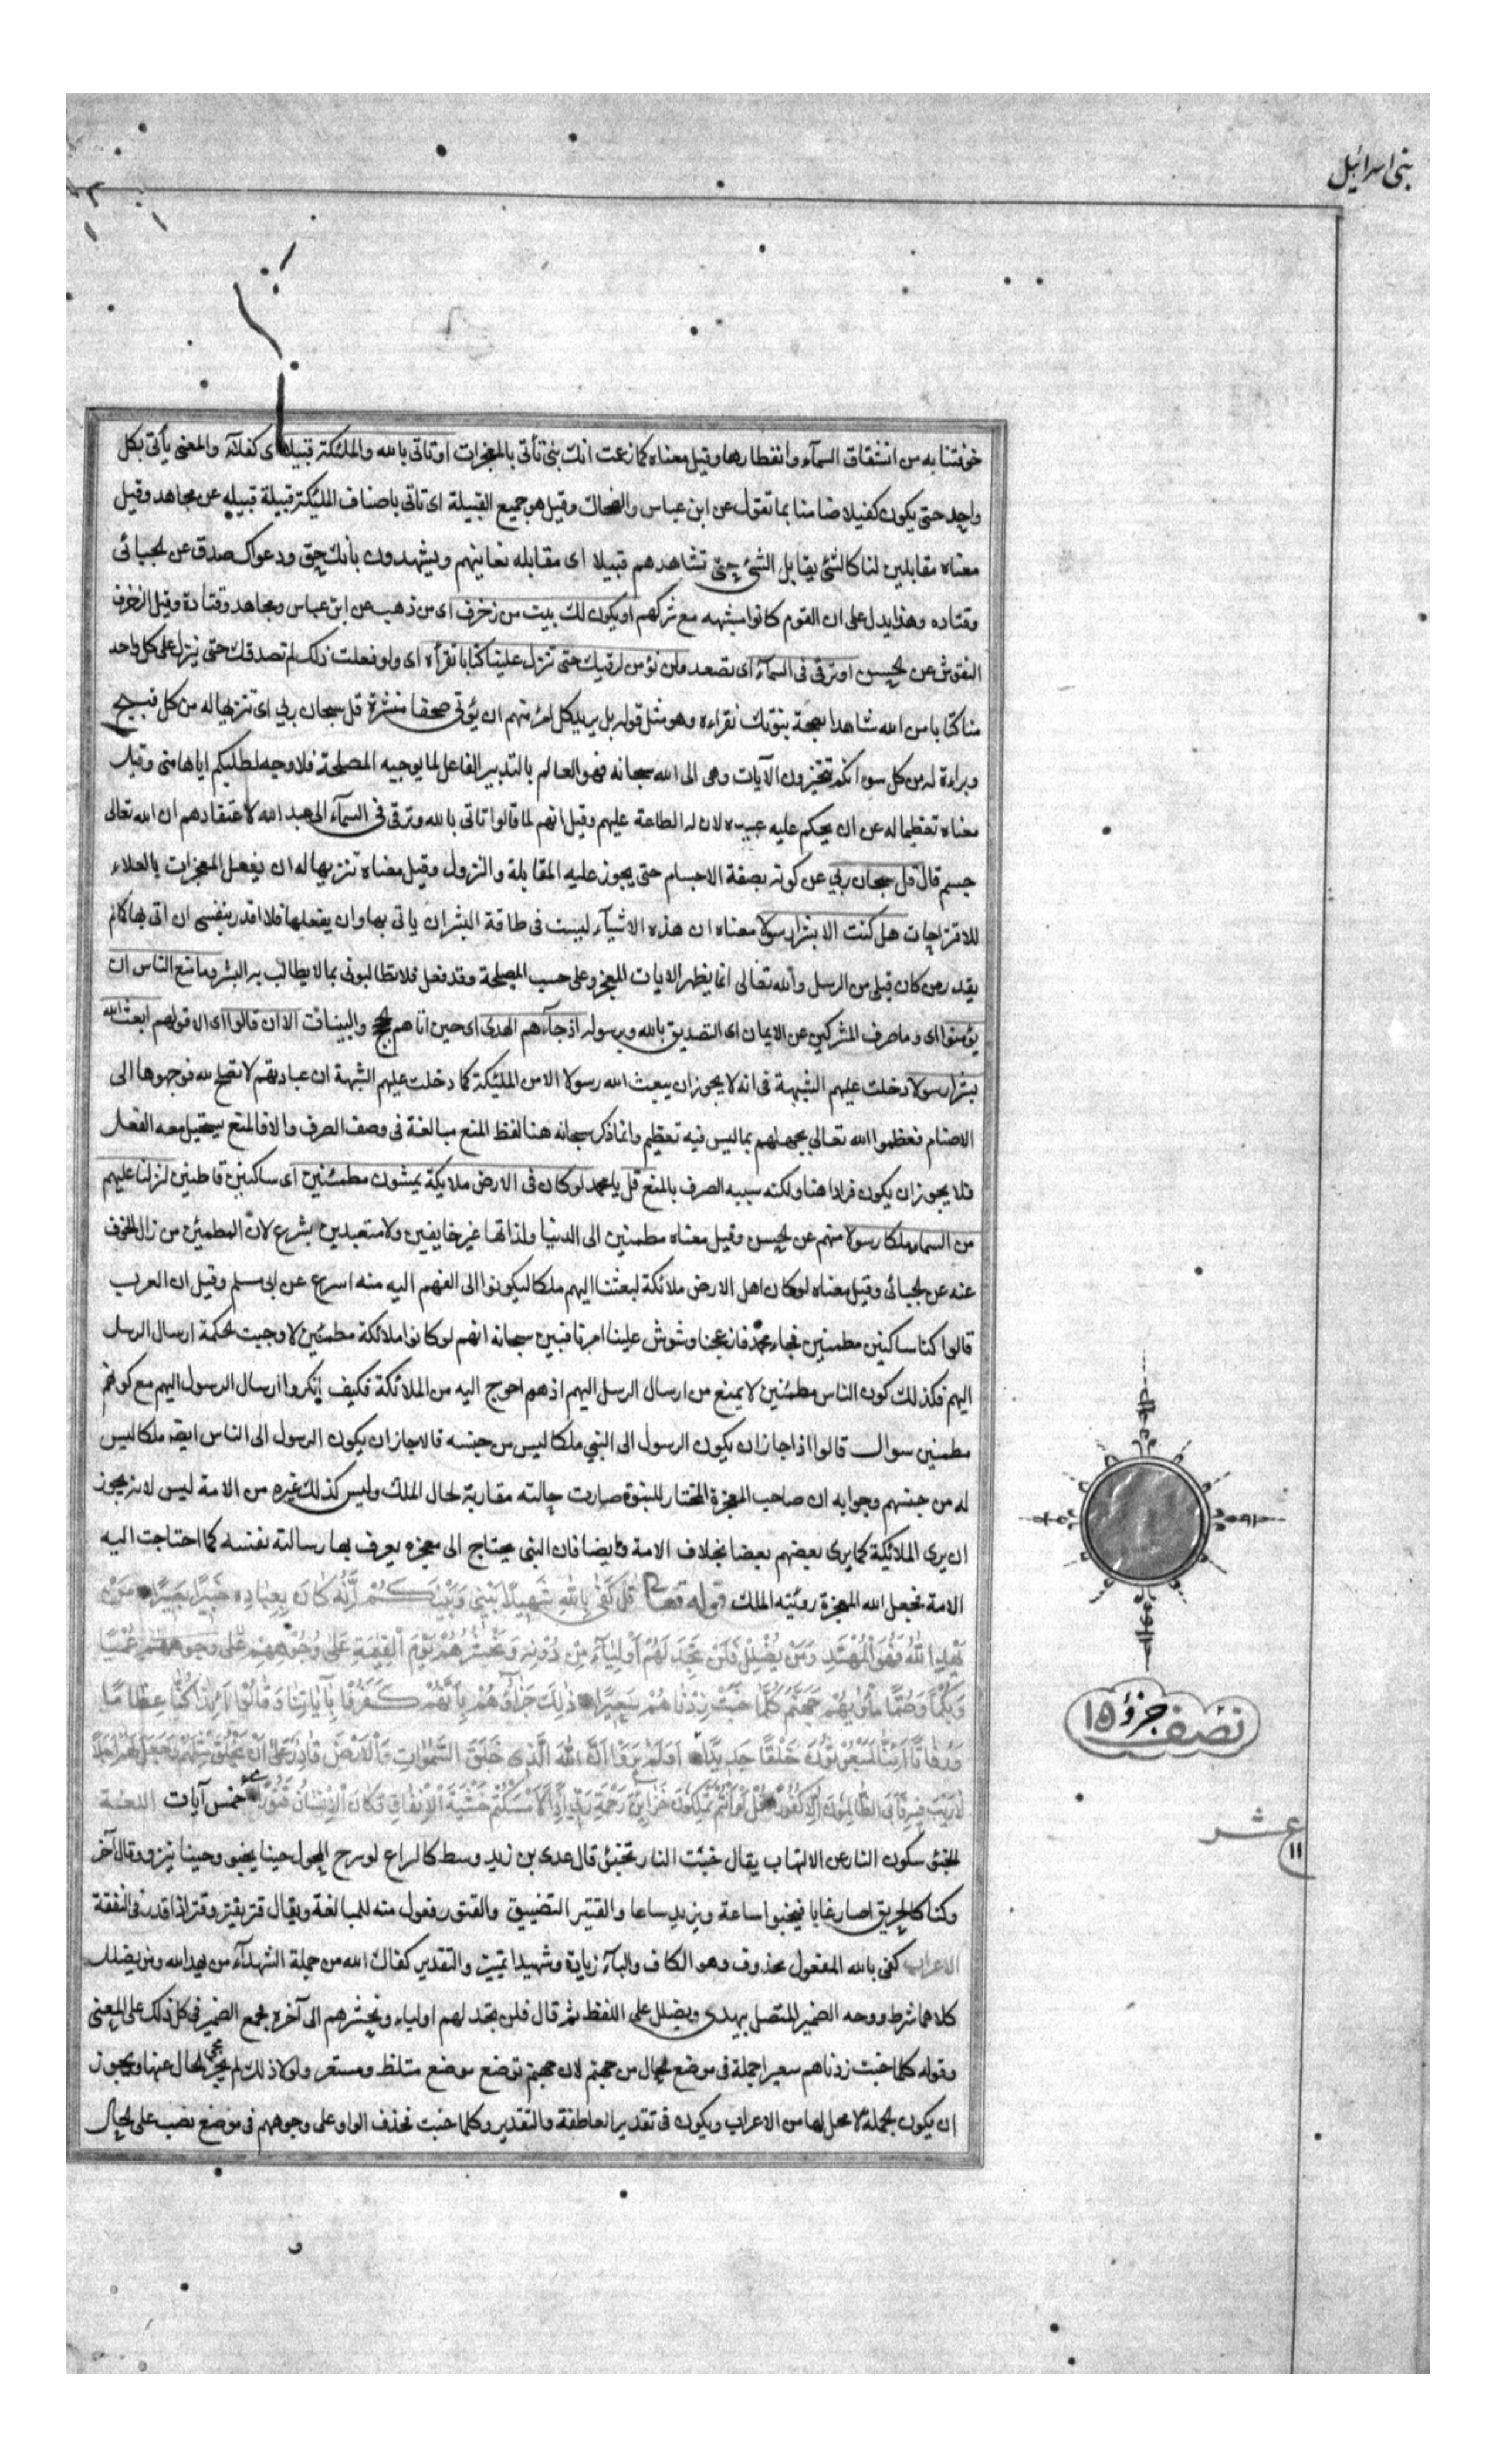 بنی اسرائیل
خوفتنا به من انشقاق السمآء وانفطارها وقیل معناه کما زعمت انک نبی تأتی بالمعجزات او تاتی بالله والملئکة قبیلا ای کفلآء والمعنی یأتی بکل
واحد حتی یکون کفیلا ضامنا بما تقول عن ابن عباس والضحاک وقیل هو جمیع القبیلة ای تاتی باصناف الملئکة قبیلة قبیله عن مجاهد وقیل
معناه مقابلین لنا کالشئ یقابل الشئ حتی تشاهدهم قبیلا ای مقابله نعاینهم ویشهدون بأنک حق ودعواک صدق عن الجبائی
وقتاده وهذا یدل علی ان القوم کانوا مشبهه مع شرکهم او یکون لک بیت من زخرف ای من ذهب عن ابن عباس ومجاهد وقتادة وقیل الزخرف
النقوش عن الحسن او ترقی فی السمآء ای تصعد ولن نؤمن لرقیک حتی تنزل علینا کتابا نقرأه ای ولو فعلت ذلک لم نصدقک حتی ینزل علی کل واحد
منا کتابا من الله شاهدا بصحة نبوتک نقراءه وهو مثل قوله بل یرید کل امرء منهم ان یؤتی صحفا منشرة قل سبحان ربی ای تنزیها له من کل قبیح
وبراءة له من کل سوء انکم تتخیرون الآیات وهی الی الله سبحانه فهو العالم بالتدبیر الفاعل لما یوجبه المصلحة فلا وجه لطلبکم ایاها منی وقیل
معناه تعظیما له عن ان یحکم علیه عبیده لان له الطاعة علیهم وقیل انهم لما قالوا تاتی بالله وترقی فی السمآء الی عند الله لاعتقادهم ان الله تعالی
جسم قال قل سبحان ربی عن کونه بصفة الاجسام حتی یجوز علیه المقابلة والنزول وقیل معناه تنزیها له ان یفعل المعجزات بالعلاء
للاقتراحات هل کنت الا بشرا رسولا معناه ان هذه الاشیآء لیست فی طاقة البشر ان یاتی بها وان یفعلها فلا اقدر بنفسی ان اتی بها کما لم
یقدر من کان قبلی من الرسل والله تعالی انما یظهر الایات المعجزة علی حسب المصلحة وقد فعل فلا تطالبونی بما لا یطالب به البشر وما منع الناس ان
یؤمنوا ای وما صرف المشرکین عن الایمان ای التصدیق بالله وبرسوله اذ جآءهم الهدی ای حین اتاهم الحجج والبینات الا ان قالوا ای الا قولهم ابعث الله
بشرا رسولا دخلت علیهم الشبهة فی انه لا یجوز ان یبعث الله رسولا الا من الملئکة کما دخلت علیهم الشبهة ان عبادتهم لا تصلح لله فوجهوها الی
الاصنام فعظموا الله تعالی بجهلهم بما لیس فیه تعظیم وانما ذکر سبحانه هنا لفظ المنع مبالغة فی وصف الصرف والا فالمنع یستحیل معه الفعل
فلا یجوز ان یکون مرادا هنا ولکنه شبه الصرف بالمنع قل یا محمد لو کان فی الارض ملایکة یمشون مطمئنین ای ساکنین قاطنین لنزلنا علیهم
من السماء ملکا رسولا منهم عن الحسن وقیل معناه مطمنین الی الدنیا ولذاتها غیر خایفین ولا متعبدین بشرع لان المطمئن من زال الخوف
عنه عن الجبائی وقیل معناه لو کان اهل الارض ملائکة لبعثنا الیهم ملکا لیکونوا الی الفهم الیه منه اسرع عن ابی مسلم وقیل ان العرب
قالوا کنا ساکنین مطمنین فجاء محمد فازعجنا وشوش علینا امرنا فبین سبحانه انهم لو کانوا ملائکة مطمئنین لاوجبت الحکمة ارسال الرسل
الیهم فکذلک کون الناس مطمئنین لا یمنع من ارسال الرسل الیهم اذ هم احوج الیه من الملائکة فکیف انکروا ارسال الرسول الیهم مع کونهم
مطمنین سوال قالوا اذا جاز ان یکون الرسول الی النبی ملکا لیس من جنسه فالا جاز ان یکون الرسول الی الناس ایضا ملکا لیس
له من جنسهم وجوابه ان صاحب المعجزة المختار للنبوة صارت حالته مقاربة لحال الملک ولیس کذلک غیره من الامة لیس لانه یجوز
ان یری الملائکة کما یری بعضهم بعضا بخلاف الامة وایضا فان النبی یحتاج الی معجزه یعرف بها رسالته نفسه کما احتاجت الیه
الامة فجعل الله المعجزة رویته الملک قوله تعالی قُلْ كَفَىٰ بِاللَّهِ شَهِيدًا بَيْنِي وَبَيْنَكُمْ إِنَّهُ كَانَ بِعِبَادِهِ خَبِيرًا بَصِيرًا مَنْ
يَهْدِ اللَّهُ فَهُوَ الْمُهْتَدِ وَمَنْ يُضْلِلْ فَلَنْ تَجِدَ لَهُمْ أَوْلِيَاءَ مِنْ دُونِهِ وَنَحْشُرُهُمْ يَوْمَ الْقِيٰمَةِ عَلَىٰ وُجُوهِهِمْ عُمْيًا
وَبُكْمًا وَصُمًّا مَأْوٰيهُمْ جَهَنَّمُ كُلَّمَا خَبَتْ زِدْنَاهُمْ سَعِيرًا ذَٰلِكَ جَزَاؤُهُمْ بِأَنَّهُمْ كَفَرُوا بِآيَاتِنَا وَقَالُوا أَئِذَا كُنَّا عِظَامًا
وَرُفَاتًا أَئِنَّا لَمَبْعُوثُونَ خَلْقًا جَدِيدًا أَوَلَمْ يَرَوْا أَنَّ اللَّهَ الَّذِي خَلَقَ السَّمٰوَاتِ وَالْأَرْضَ قَادِرٌ عَلَىٰ أَنْ يَخْلُقَ مِثْلَهُمْ وَجَعَلَ لَهُمْ أَجَلًا
لَا رَيْبَ فِيهِ فَأَبَى الظَّالِمُونَ إِلَّا كُفُورًا قُلْ لَوْ أَنْتُمْ تَمْلِكُونَ خَزَائِنَ رَحْمَةِ رَبِّي إِذًا لَأَمْسَكْتُمْ خَشْيَةَ الْإِنْفَاقِ وَكَانَ الْإِنْسَانُ قَتُورًا خمس آیات اللغة
الخبو سکون النار عن الالتهاب یقال خبت النار تخبئ قال عدی بن زید وسطه کالیراع لو سرج المجول حینا یخبو وحینا ینیر وقال آخر
وکنا کالحریق اصار غابا فیخبوا ساعة ویزید ساعا والقتیر التضییق والقتور فعول منه للمبالغة ویقال قتر یقتر وقتر اذا قدر فی النفقة
الاعراب کفی بالله المفعول محذوف وهو الکاف والبآء زیادة وشهیدا تمییز والتقدیر کفاک الله من جملة الشهدآء من یهد الله ومن یضلل
کلاهما شرط ووحد الضمیر المتصل بیهدی ویضلل علی اللفظ ثم قال فلن تجد لهم اولیاء ونحشرهم الی آخره بجمع الضمیر فی کل ذلک علی المعنی
وقوله کلما خبت زدناهم سعیرا جملة فی موضع الحال من جهنم لان جهنم توضع موضع متلظ ومستعر ولولا ذلک لم یجئ الحال عنها ویجوز
ان یکون الجملة لا محل لها من الاعراب ویکون فی تقدیر العاطفة والتقدیر وکلما خبت فحذف الواو علی وجوههم فی موضع نصب علی الحال
نصف جزؤ ١٥
عشر
١١
و